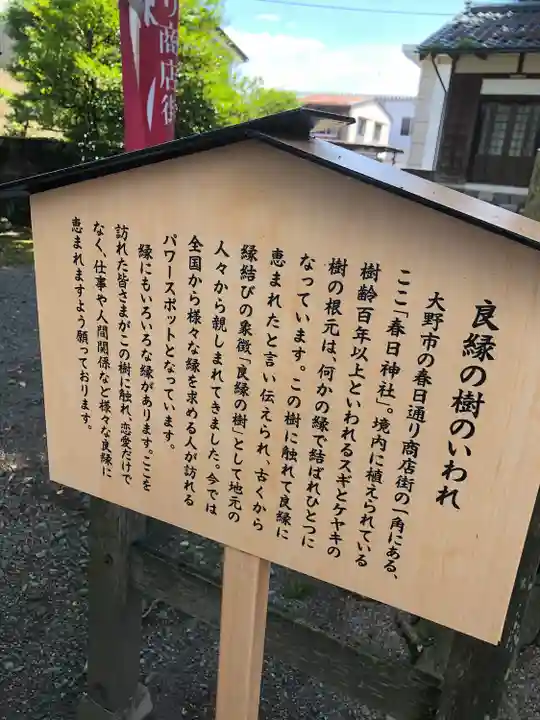 り商店街
良縁の樹のいわれ
大野市の春日通り商店街の一角にある、
ここ「春日神社」。境内に植えられている
樹齢百年以上といわれるスギとケヤキの
樹の根元は、何かの縁で結ばれひとつに
なっています。この樹に触れて良縁に
恵まれたと言い伝えられ、古くから
縁結びの象徴「良縁の樹」として地元の
人々から親しまれてきました。今では
全国から様々な縁を求める人が訪れる
パワースポットとなっています。
縁にもいろいろな縁があります。ここを
訪れた皆さまがこの樹に触れ、恋愛だけで
なく、仕事や人間関係など様々な良縁に
恵まれますよう願っております。